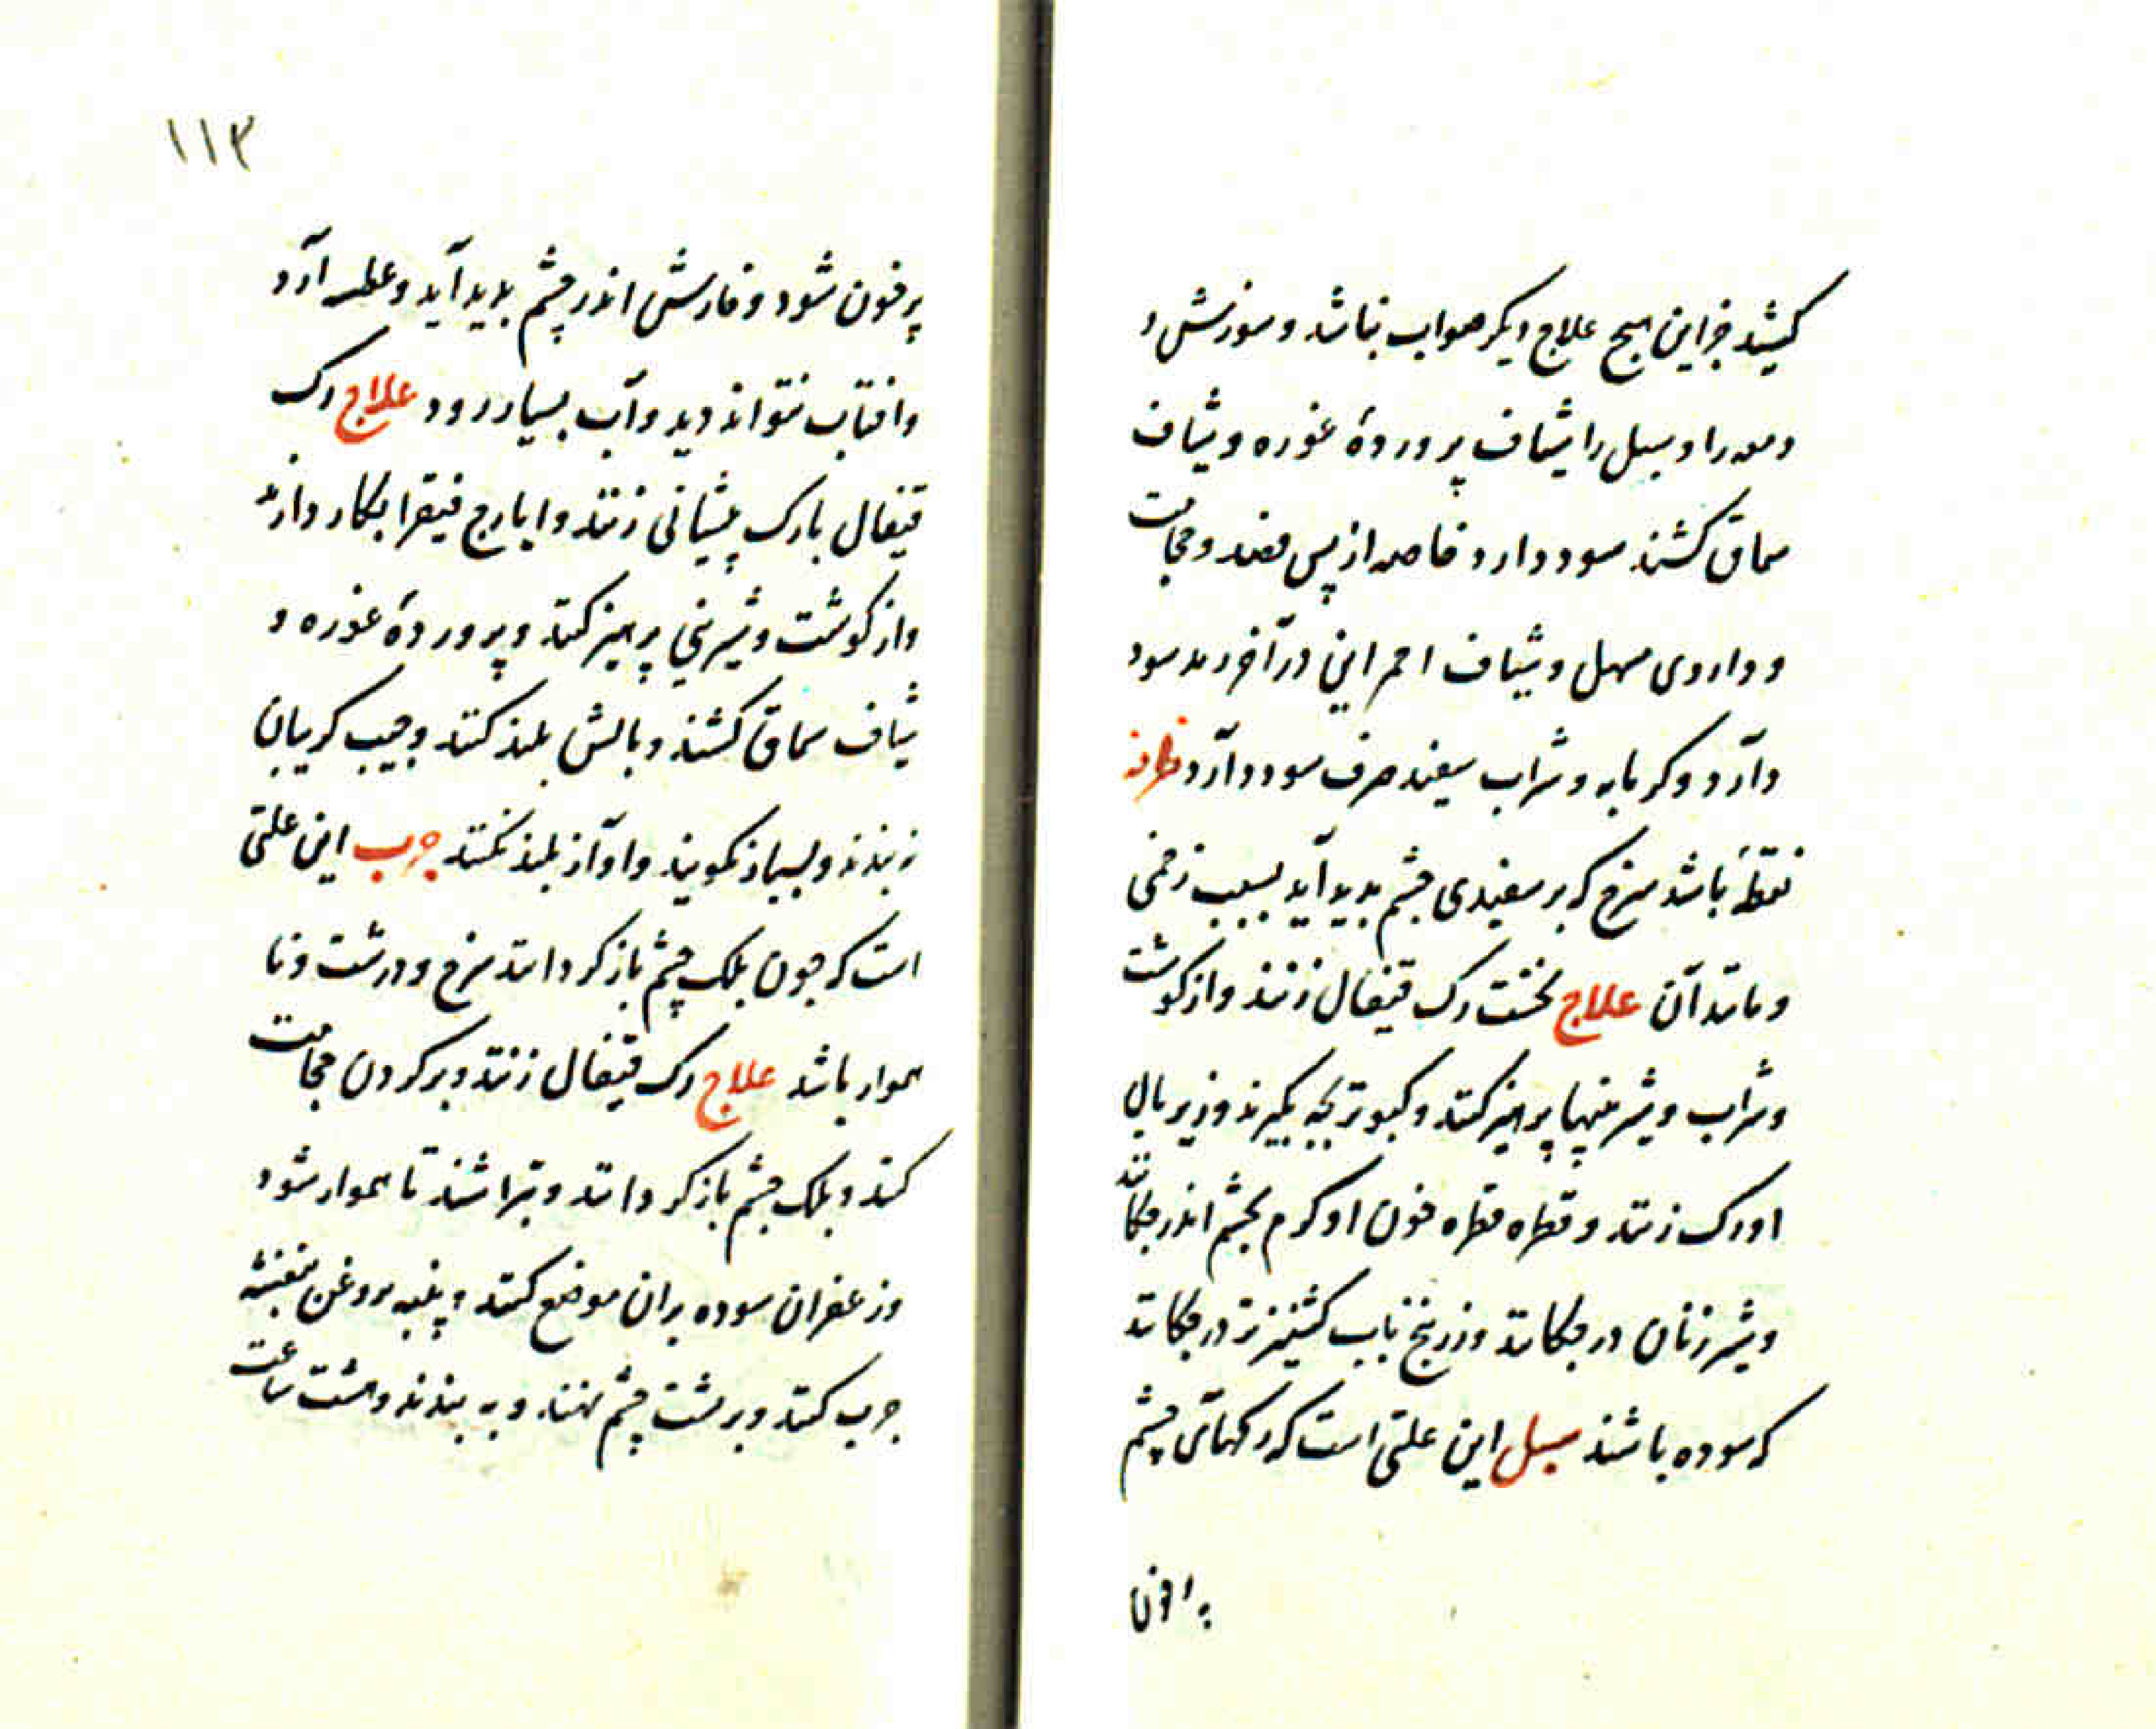 کیشد جز این هیچ علاج دیکر صواب نباشد و سوزش و
و معه را و سبل را شیاف پروردهٔ غوره و شیاف
سماق کشند سود دارد خاصه از پس فصد و حجامت
و داروی مسهل و شیاف احمر این در آخر مد سود
دآرد و کرمابه و شراب سفید صرف سود دآرد طرفه
نقطهٔ باشد سرخ که بر سفیدی چشم بدید آید بسبب زخمی
و مانند آن علاج نخشت رک قیفال زنند و از کوشت
و شراب و شیرینیها پرهیز کنند و کبوتر بچه بکیرند و زیر بال
او رک زنند و قطره قطره خون او کرم بچشم اندر جکانند
و شیر زنان در جکانند و زرنیخ بآب کشنیز تر در جکانند
که سوده باشند سبل این علتی است که رکهآی چشم
پر خون
۱۱۳
پر خون شود و خارش اندر چشم بدید آید و عطسه آرد
و افتاب نتواند دید و آب بسیار رود علاج رک
قیفال یا رک پیشانی زنند و ایارج فیقرا بکار دارند
و از کوشت و شیرینی پرهیز کنند و پروردهٔ غوره و
شیاف سماق کشند و بالش بلند کنند و جیب کریبان
نبندند و بسیار نکویند و اوآز بلند نکنند جرب این علتی
است که جون بلک چشم باز کردانند سرخ و درشت و نا
هموار باشد علاج رک قیفال زنند و بر کردن حجامت
کنند و بلک چشم باز کردانند و بتراشند تا هموار شود
و زعفران سوده بران موضع کنند و پنبه بروغن بنفشه
جرب کنند و بر پشت چشم نهند و به بندند و هشت ساعت